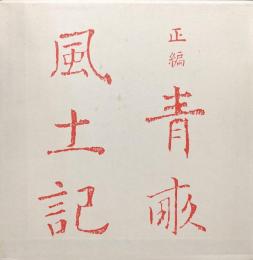 正編
青畝
風土記